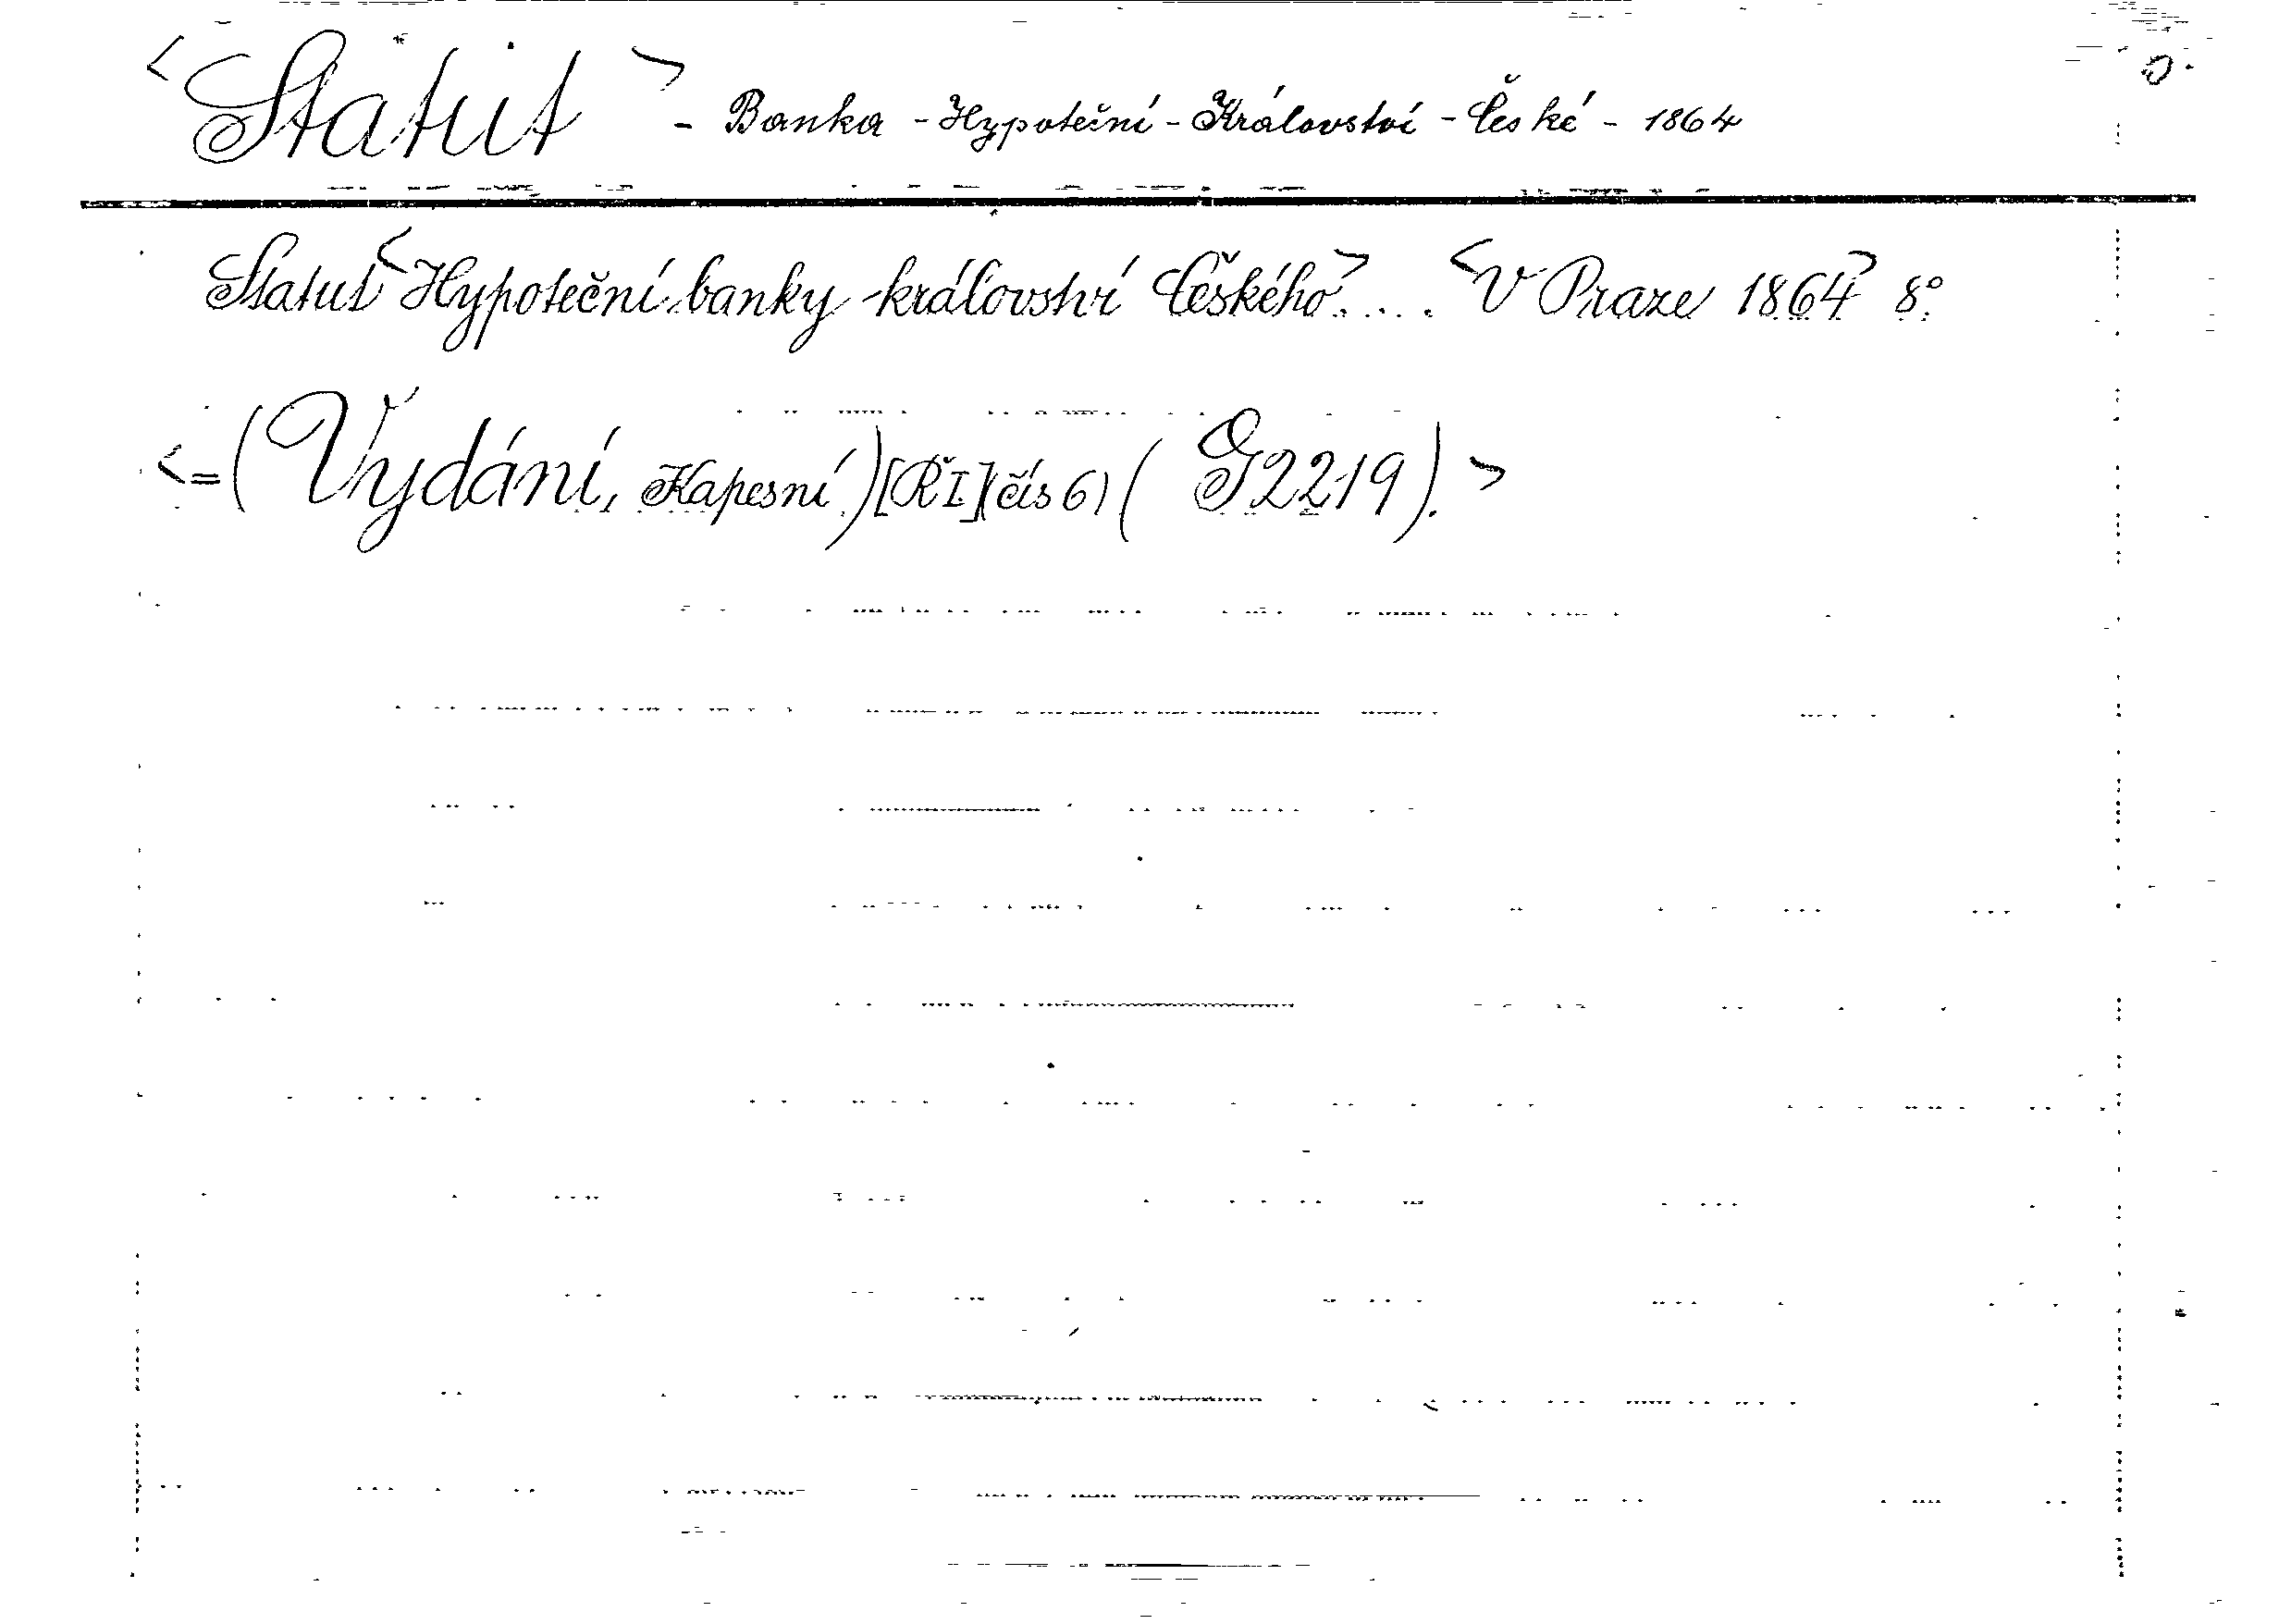 <Statut> - Banka - Hypoteční - Království - České - 1864
Statut <Hypoteční banky království Českého> .... <V Praze 1864> 8°.
<=(Vydání, Kapesní.) [Ř I.] (čís 6) (G 2219).>